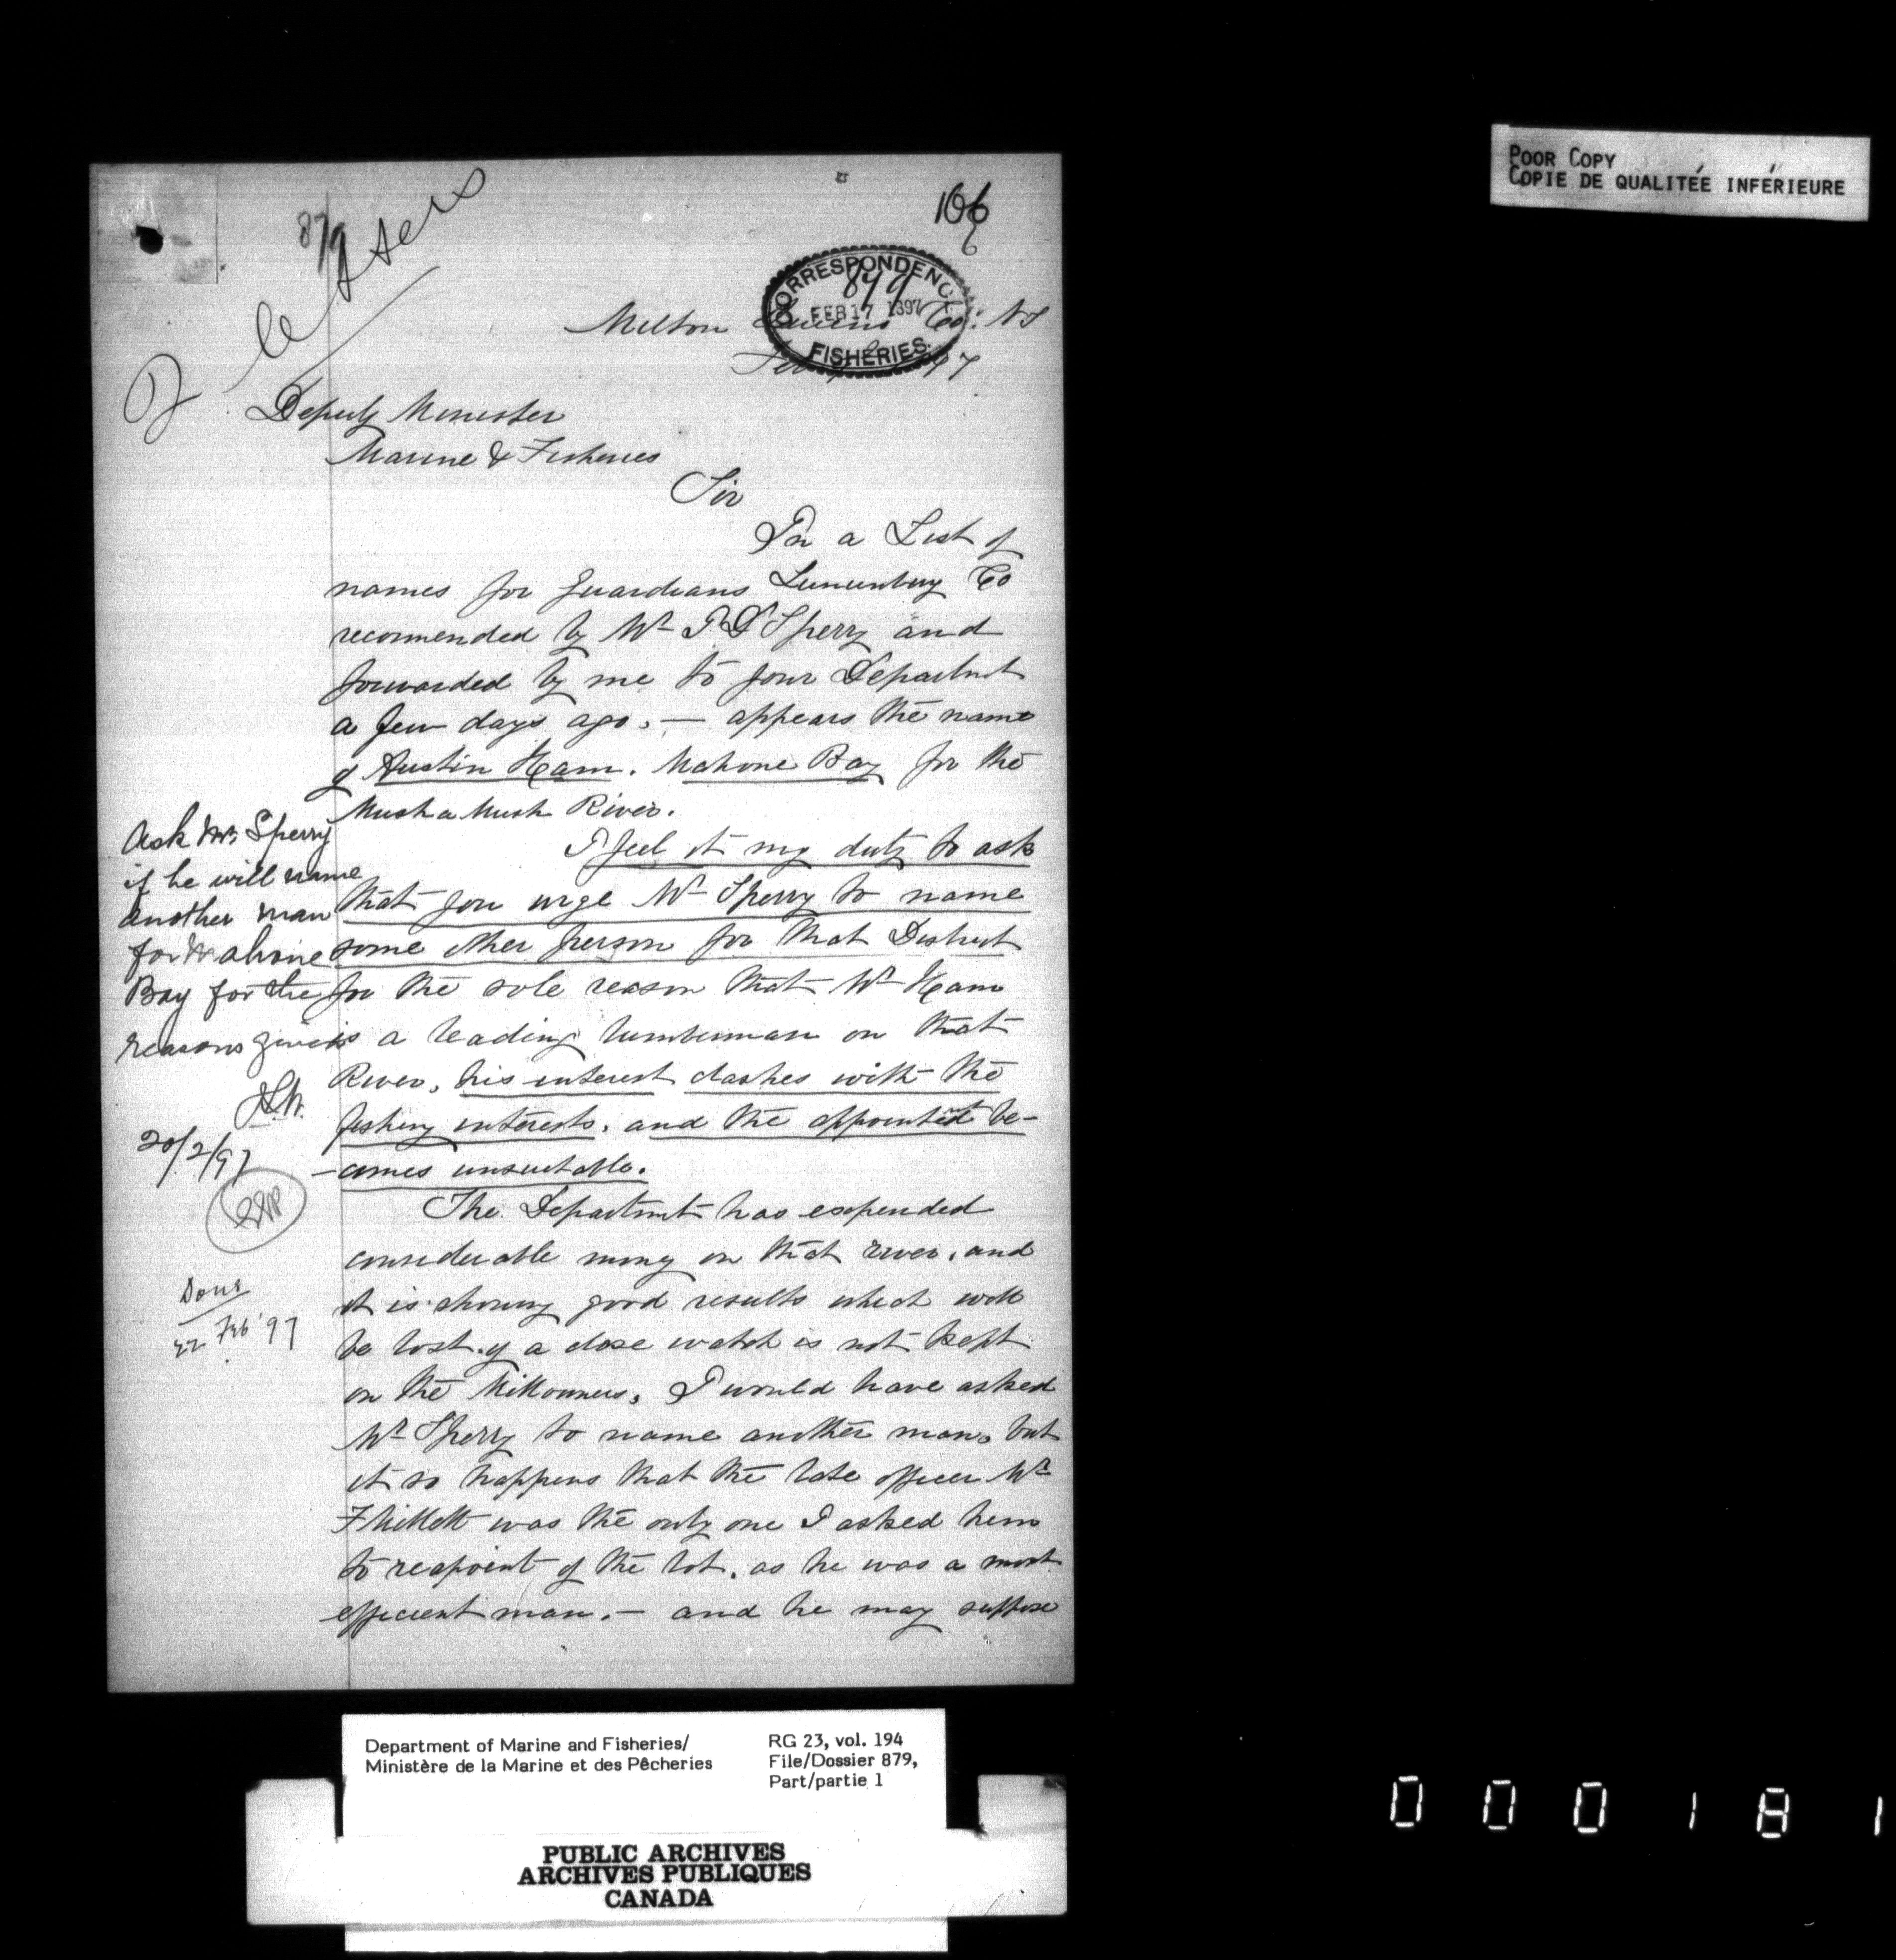 POOR COPY
COPIE DE QUALITÉE INFÉRIEURE
106
879
CORRESPONDENCE
879
FEB 17 1897
FISHERIES.
Milton Queens Co. N S
Feb 97
Deputy Minister
Marine & Fisheries
Sir
In a List of
names for guardians Lunenburg Co
recommended by Mr Sperry and
forwarded by me to your Departmt
a few days ago. — appears the name
of Austin Ham. Mahone Bay for the
Mush a Mush River.
I feel it my duty to ask
that you urge Mr Sperry to name
some other person for that District
for the sole reason that Mr Ham
is a leading lumberman on that
River, his interest clashes with the
fishery interests. and the appointmt be-
-comes unsuitable.
The Departmt has expended
considerable mony on that river, and
it is showing good results which will
be lost if a close watch is not kept
on the Millowners, I would have asked
Mr Sperry to name another man, but
it so happens that the late officer Mr
F Millett was the only one I asked him
to reapoint of the lot. as he was a most
efficient man. — and he may suppose
Ask Mr. Sperry
if he will name
another man
for Mahone
Bay for the
reasons given
20/2/97
Done
22 Feb '97
Department of Marine and Fisheries/
Ministère de la Marine et des Pêcheries
RG 23, vol. 194
File/Dossier 879,
Part/partie 1
PUBLIC ARCHIVES
ARCHIVES PUBLIQUES
CANADA
000181